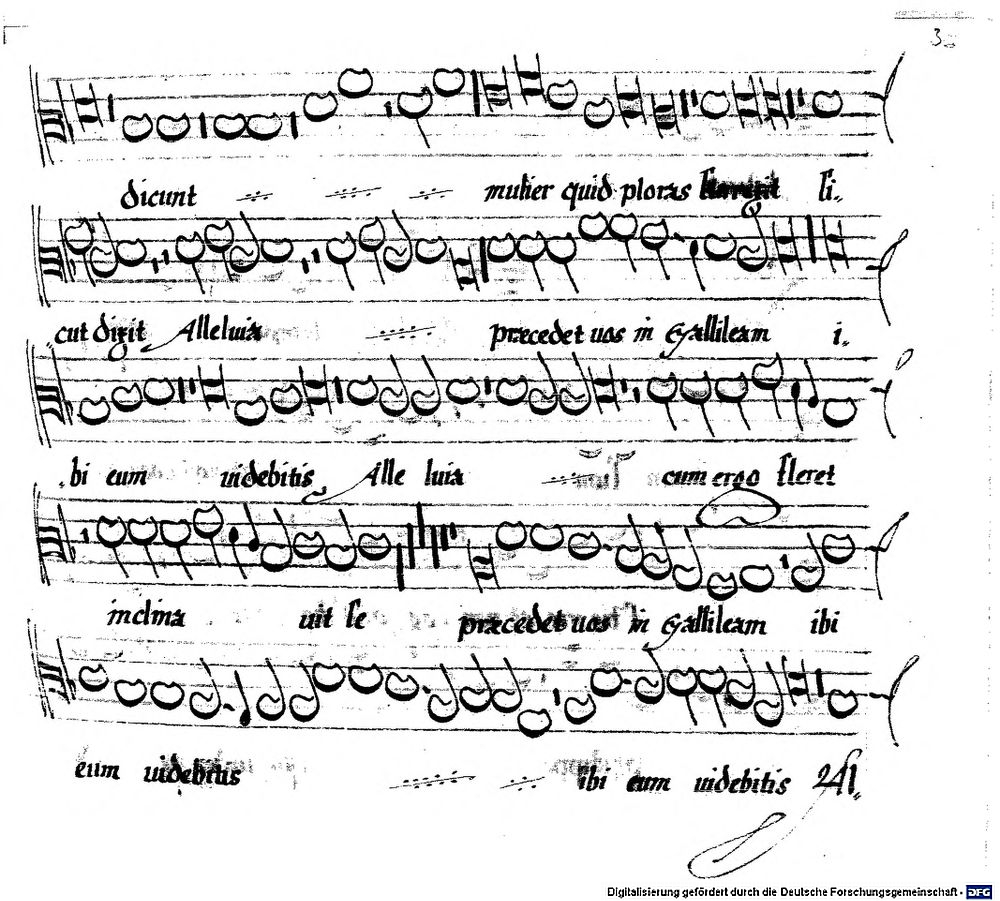 3
dicunt mulier quid ploras li„
cut dixit Alleluia præcedet uos in Gallileam i„
„bi eum uidebitis Alle luia cum ergo fleret
inclina uit se præcedet uos in Gallileam ibi
eum uidebitis ibi eum uidebitis
Digitalisierung gefördert durch die Deutsche Forschungsgemeinschaft - DFG